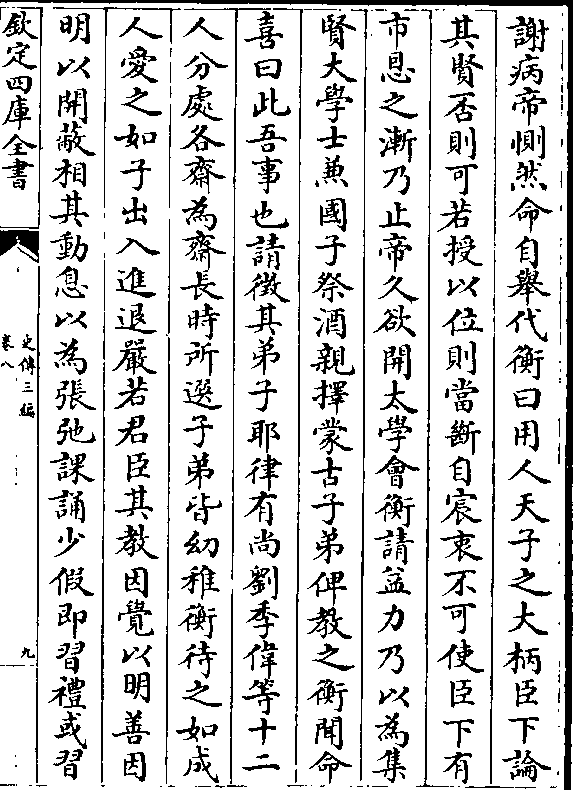 謝病帝惻然命自舉代衡曰用人天子之大柄臣下論
其賢否則可若授以位則當斷自宸衷不可使臣下有
市恩之漸乃止帝久欲開太學會衡請益力乃以為集
賢大學士兼國子祭酒親擇蒙古子弟俾教之衡聞命
喜曰此吾事也請徵其弟子耶律有尚劉季偉等十二
人分處各齋為齋長時所選子弟皆幼稚衡待之如成
人愛之如子出入進退嚴若君臣其教因覺以明善因
明以開蔽相其動息以為張弛課誦少假即習禮或習
欽定四庫全書
史傳三編
卷八
九